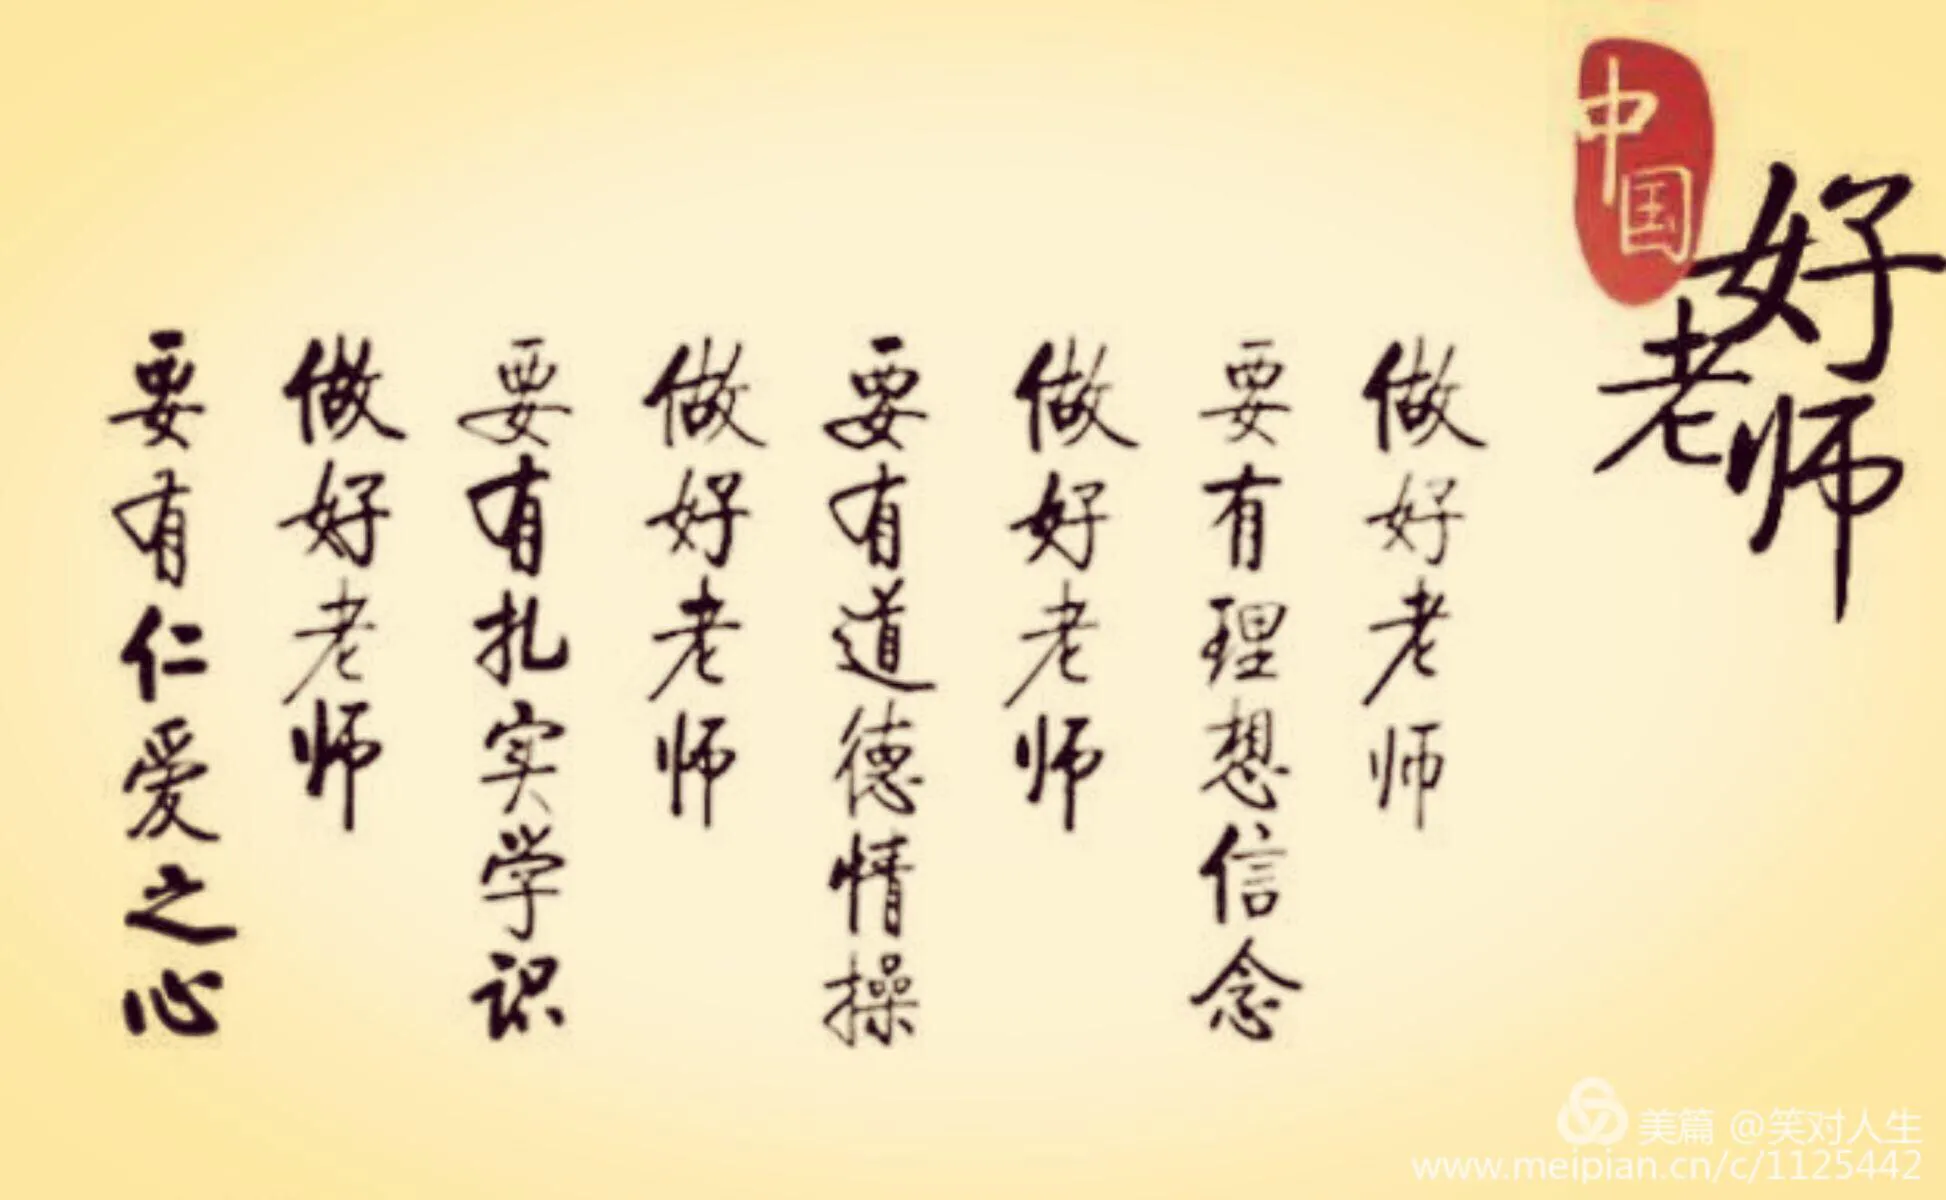 中国
好老师
做好老师
要有理想信念
做好老师
要有道德情操
做好老师
要有扎实学识
做好老师
要有仁爱之心
美篇 @笑对人生
www.meipian.cn/c/1125442